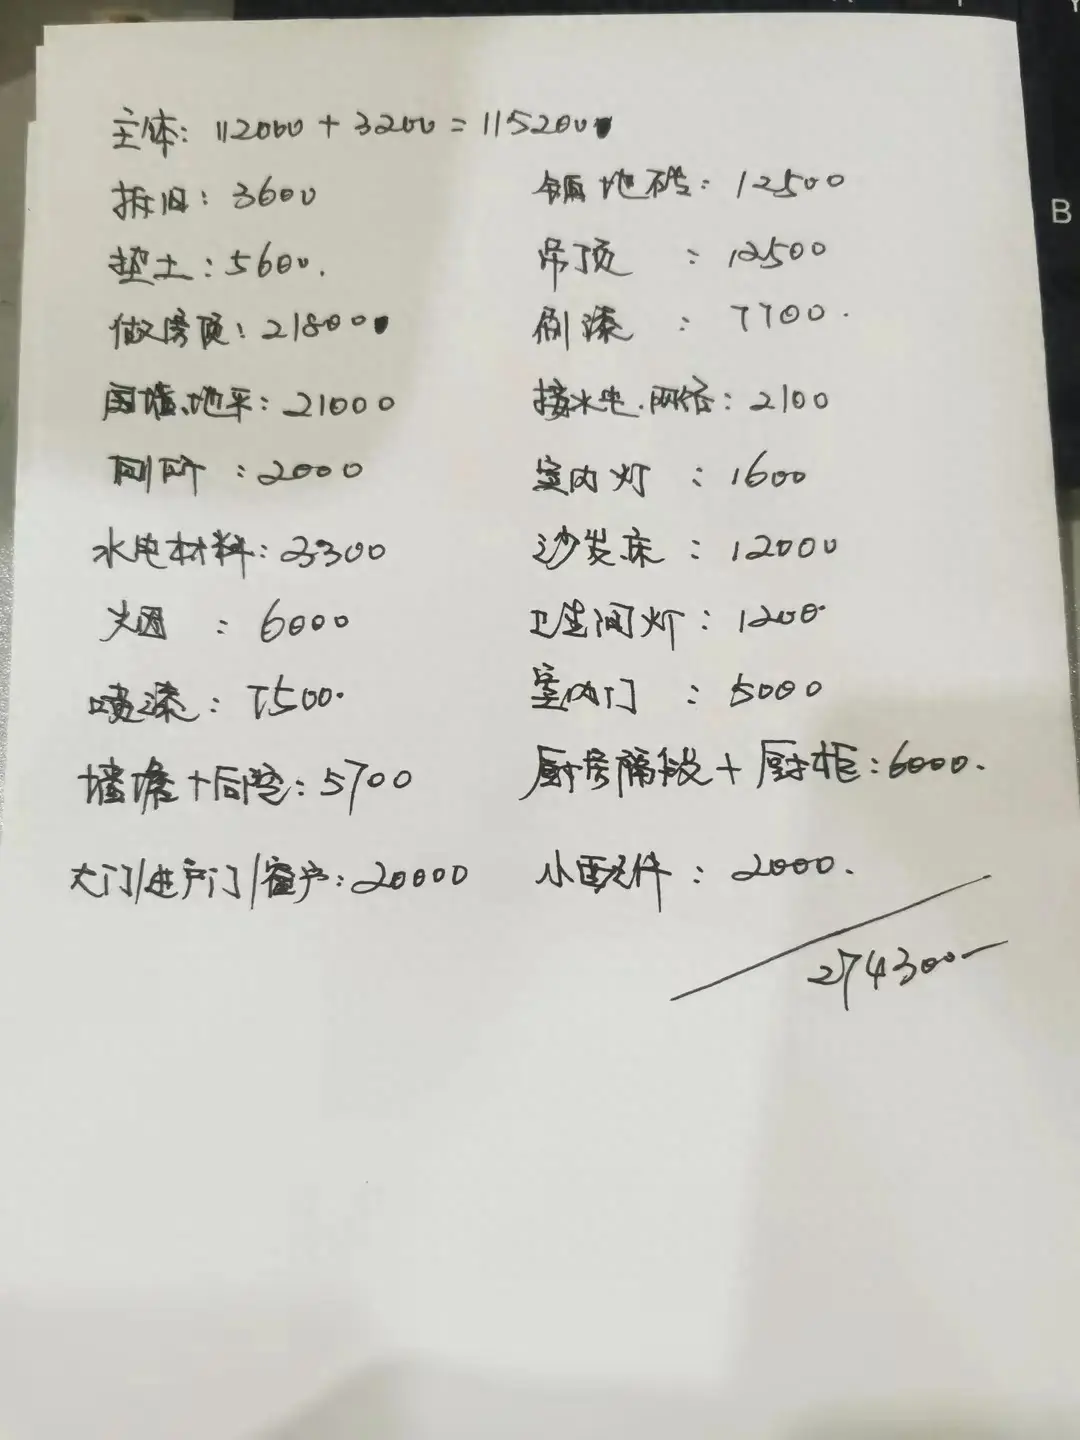 主体: 112000 + 3200 = 115200
拆旧: 3600
垫土: 5600.
做房顶: 21800
围墙、地平: 21000
厕所: 2000
水电材料: 3300
火困: 6000
喷漆: 7500.
墙檐+后院: 5700
大门/进户门/窗户: 20000
铺地砖: 12500
吊顶: 12500
刷漆: 7700.
接水电.网络: 2100
室内灯: 1600
沙发床: 12000
卫生间灯: 1200
室内门: 5000
厨房隔段+厨柜: 6000.
小配件: 2000.
274300
B